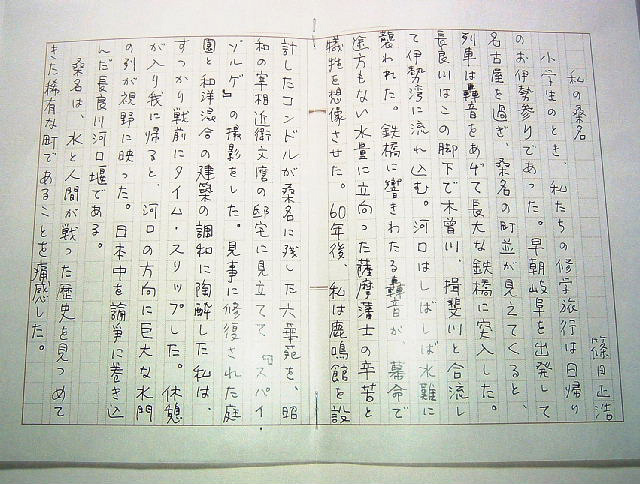 私の桑名
篠田正浩
小学生のとき、私たちの修学旅行は日帰り
のお伊勢参りであった。早朝岐阜を出発して
名古屋を過ぎ、桑名の町並が見えてくると、
列車は轟音をあげて長大な鉄橋に突入した。
長良川はこの脚下で木曽川、揖斐川と合流し
て伊勢湾に流れ込む。河口はしばしば水難に
襲われた。鉄橋に響きわたる轟音が、幕命で
途方もない水量に立向った薩摩藩士の辛苦と
犠牲を想像させた。60年後、私は鹿鳴館を設
計したコンドルが桑名に残した六華苑を、昭
和の宰相近衛文麿の邸宅に見立てて『スパイ・
ゾルゲ』の撮影をした。見事に修復された庭
園と和洋混合の建築の調和に陶酔した私は、
すっかり戦前にタイム・スリップした。休憩
が入り我に帰ると、河口の方向に巨大な水門
の列が視野に映った。日本中を論争に巻き込
んだ長良川河口堰である。
桑名は、水と人間が戦った歴史を見つめて
きた稀有な町であることを痛感した。